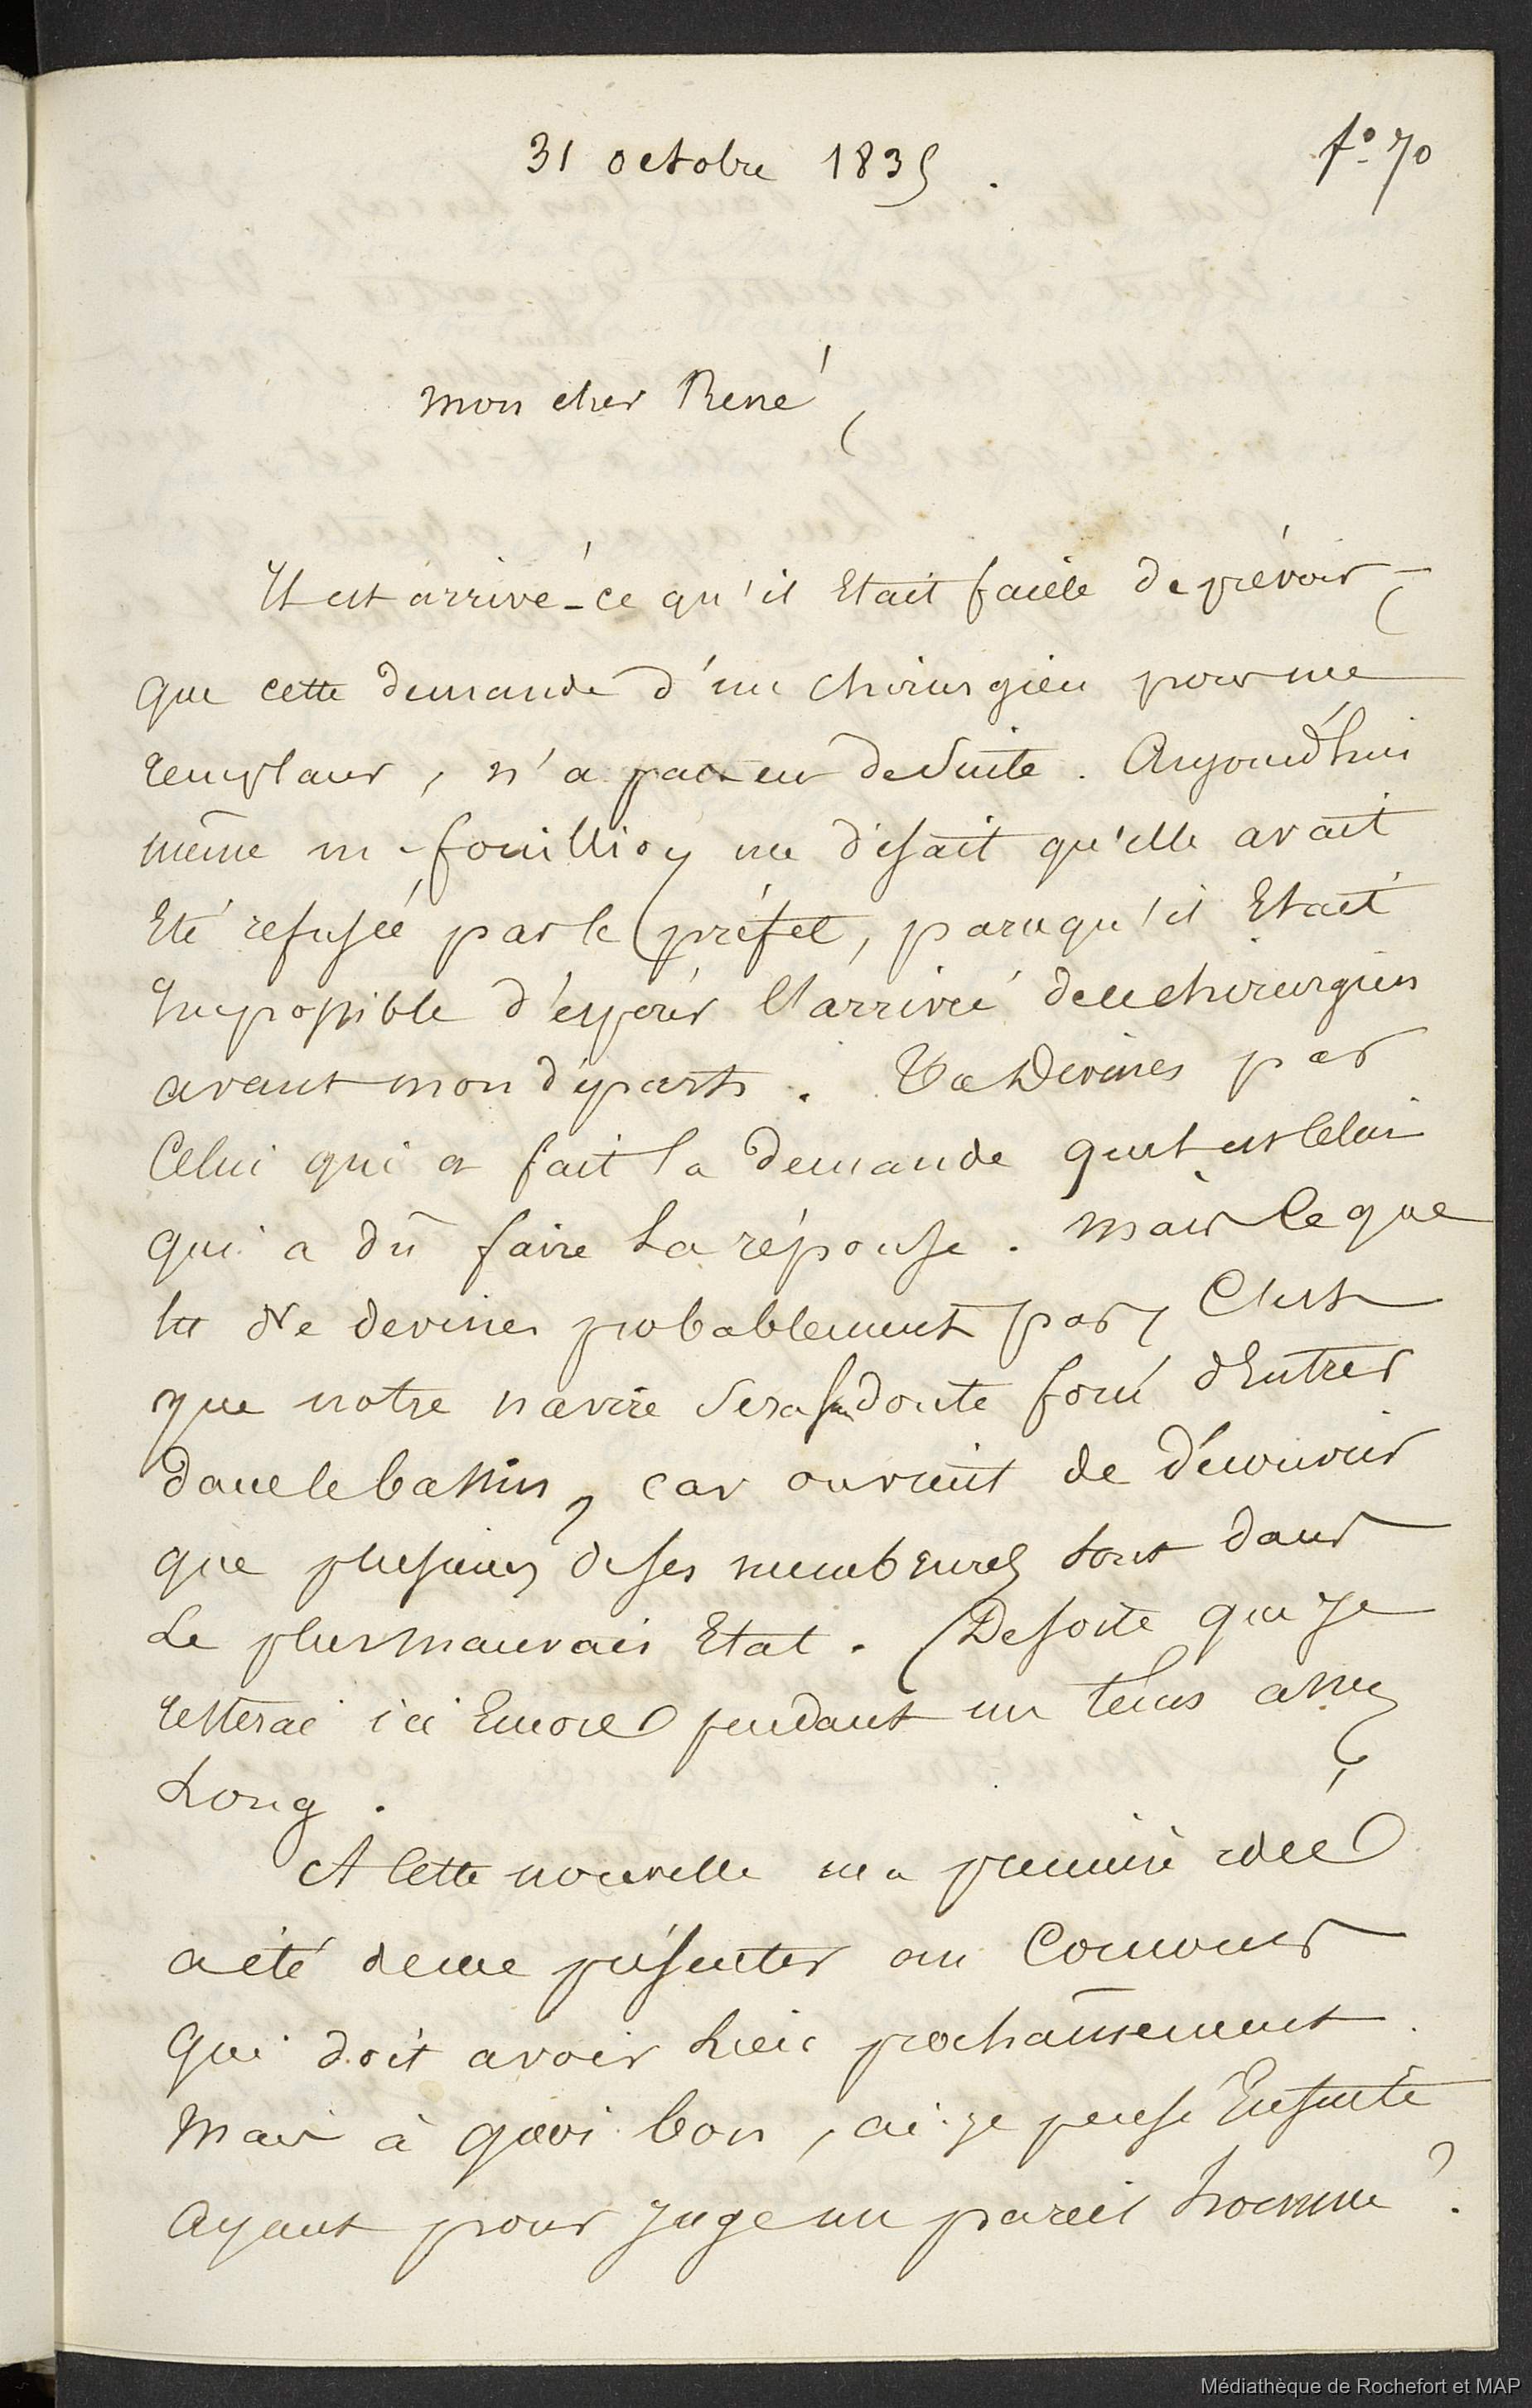 31 octobre 1835.
fo. 70
Mon cher René,
Il est arrivé - ce qu'il Etait facile de prévoir -,
que cette demande d'un chirurgien pour me
remplacer, n'a pas eu de suite. Aujourd'hui
même m. fouillioy me disait qu'elle avait
Eté refusée par le préfet, parce qu'il Etait
Impossible d'espérer l'arrivée de ce chirurgien
avant mon départ. Tu devines par
Celui qui a fait la demande quel est Celui
qui a dû faire la réponse. Mais Ce que
tu Ne devines probablement pas, C'est
que notre navire sera sans doute forcé d'Entrer
dans le bassin, car on vient de découvrir
que plusieurs de ses membrures sont dans
Le plus mauvais Etat. De sorte que Je
resterai ici Encore pendant un tems assez
Long.
A Cette nouvelle ma première idée
a été de me présenter au Concours
Qui doit avoir Lieu prochainement.
Mais à quoi bon, ai-je pensé Ensuite
Ayant pour Juge un pareil homme ?
Médiathèque de Rochefort et MAP